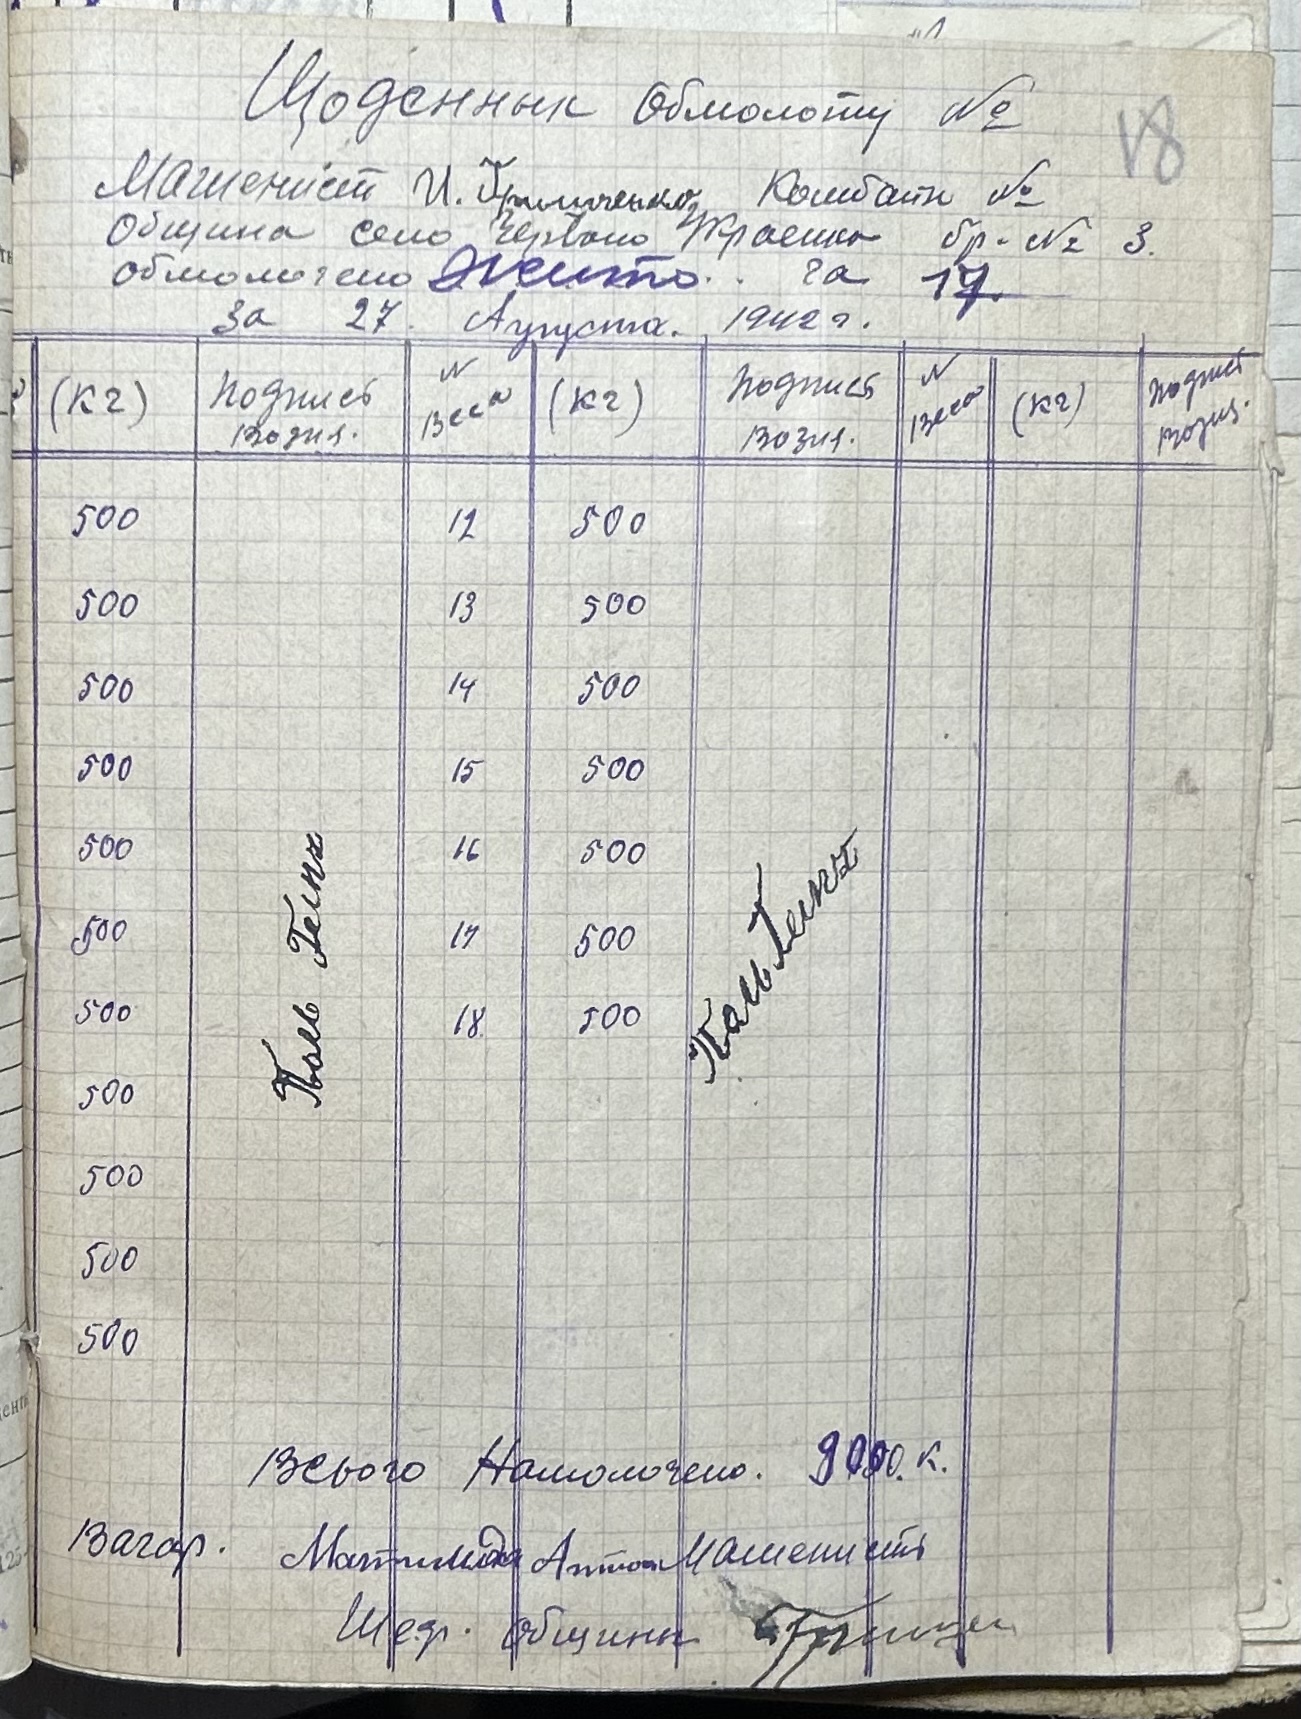 Щоденнык Обмолоту №
18
Машеніст И. Комбайн №
Община село Червоно Украенка бр. № 3.
обмолочено Жито. га 17
За 27. Августа. 1942 г.
(кг) Подпись возил. N веса (кг) Подпись возия. N Веса (кг) Подпись возил.
500 12 500
500 13 500
500 14 500
500 15 500
500 16 500
500 17 500
500 18 500
500
500
500
500
Поль Гелих
Поль Гелих
Всього Намолочено. 9000. к.
Вагар. Матильда Антон Машенисть
Шеф. Общины